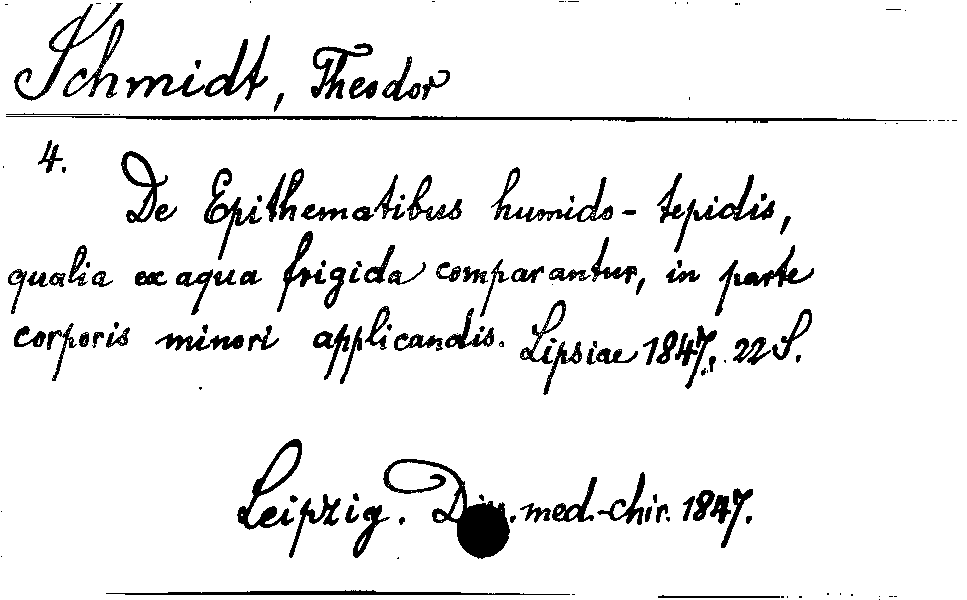 Schmidt, Theodor
4.
De Epithematibus humido-tepidis,
qualia ex aqua frigida comparantur, in parte
corporis minori applicandis. Lipsiae 1847. 22 S.
Leipzig. Diss. med.-chir. 1847.